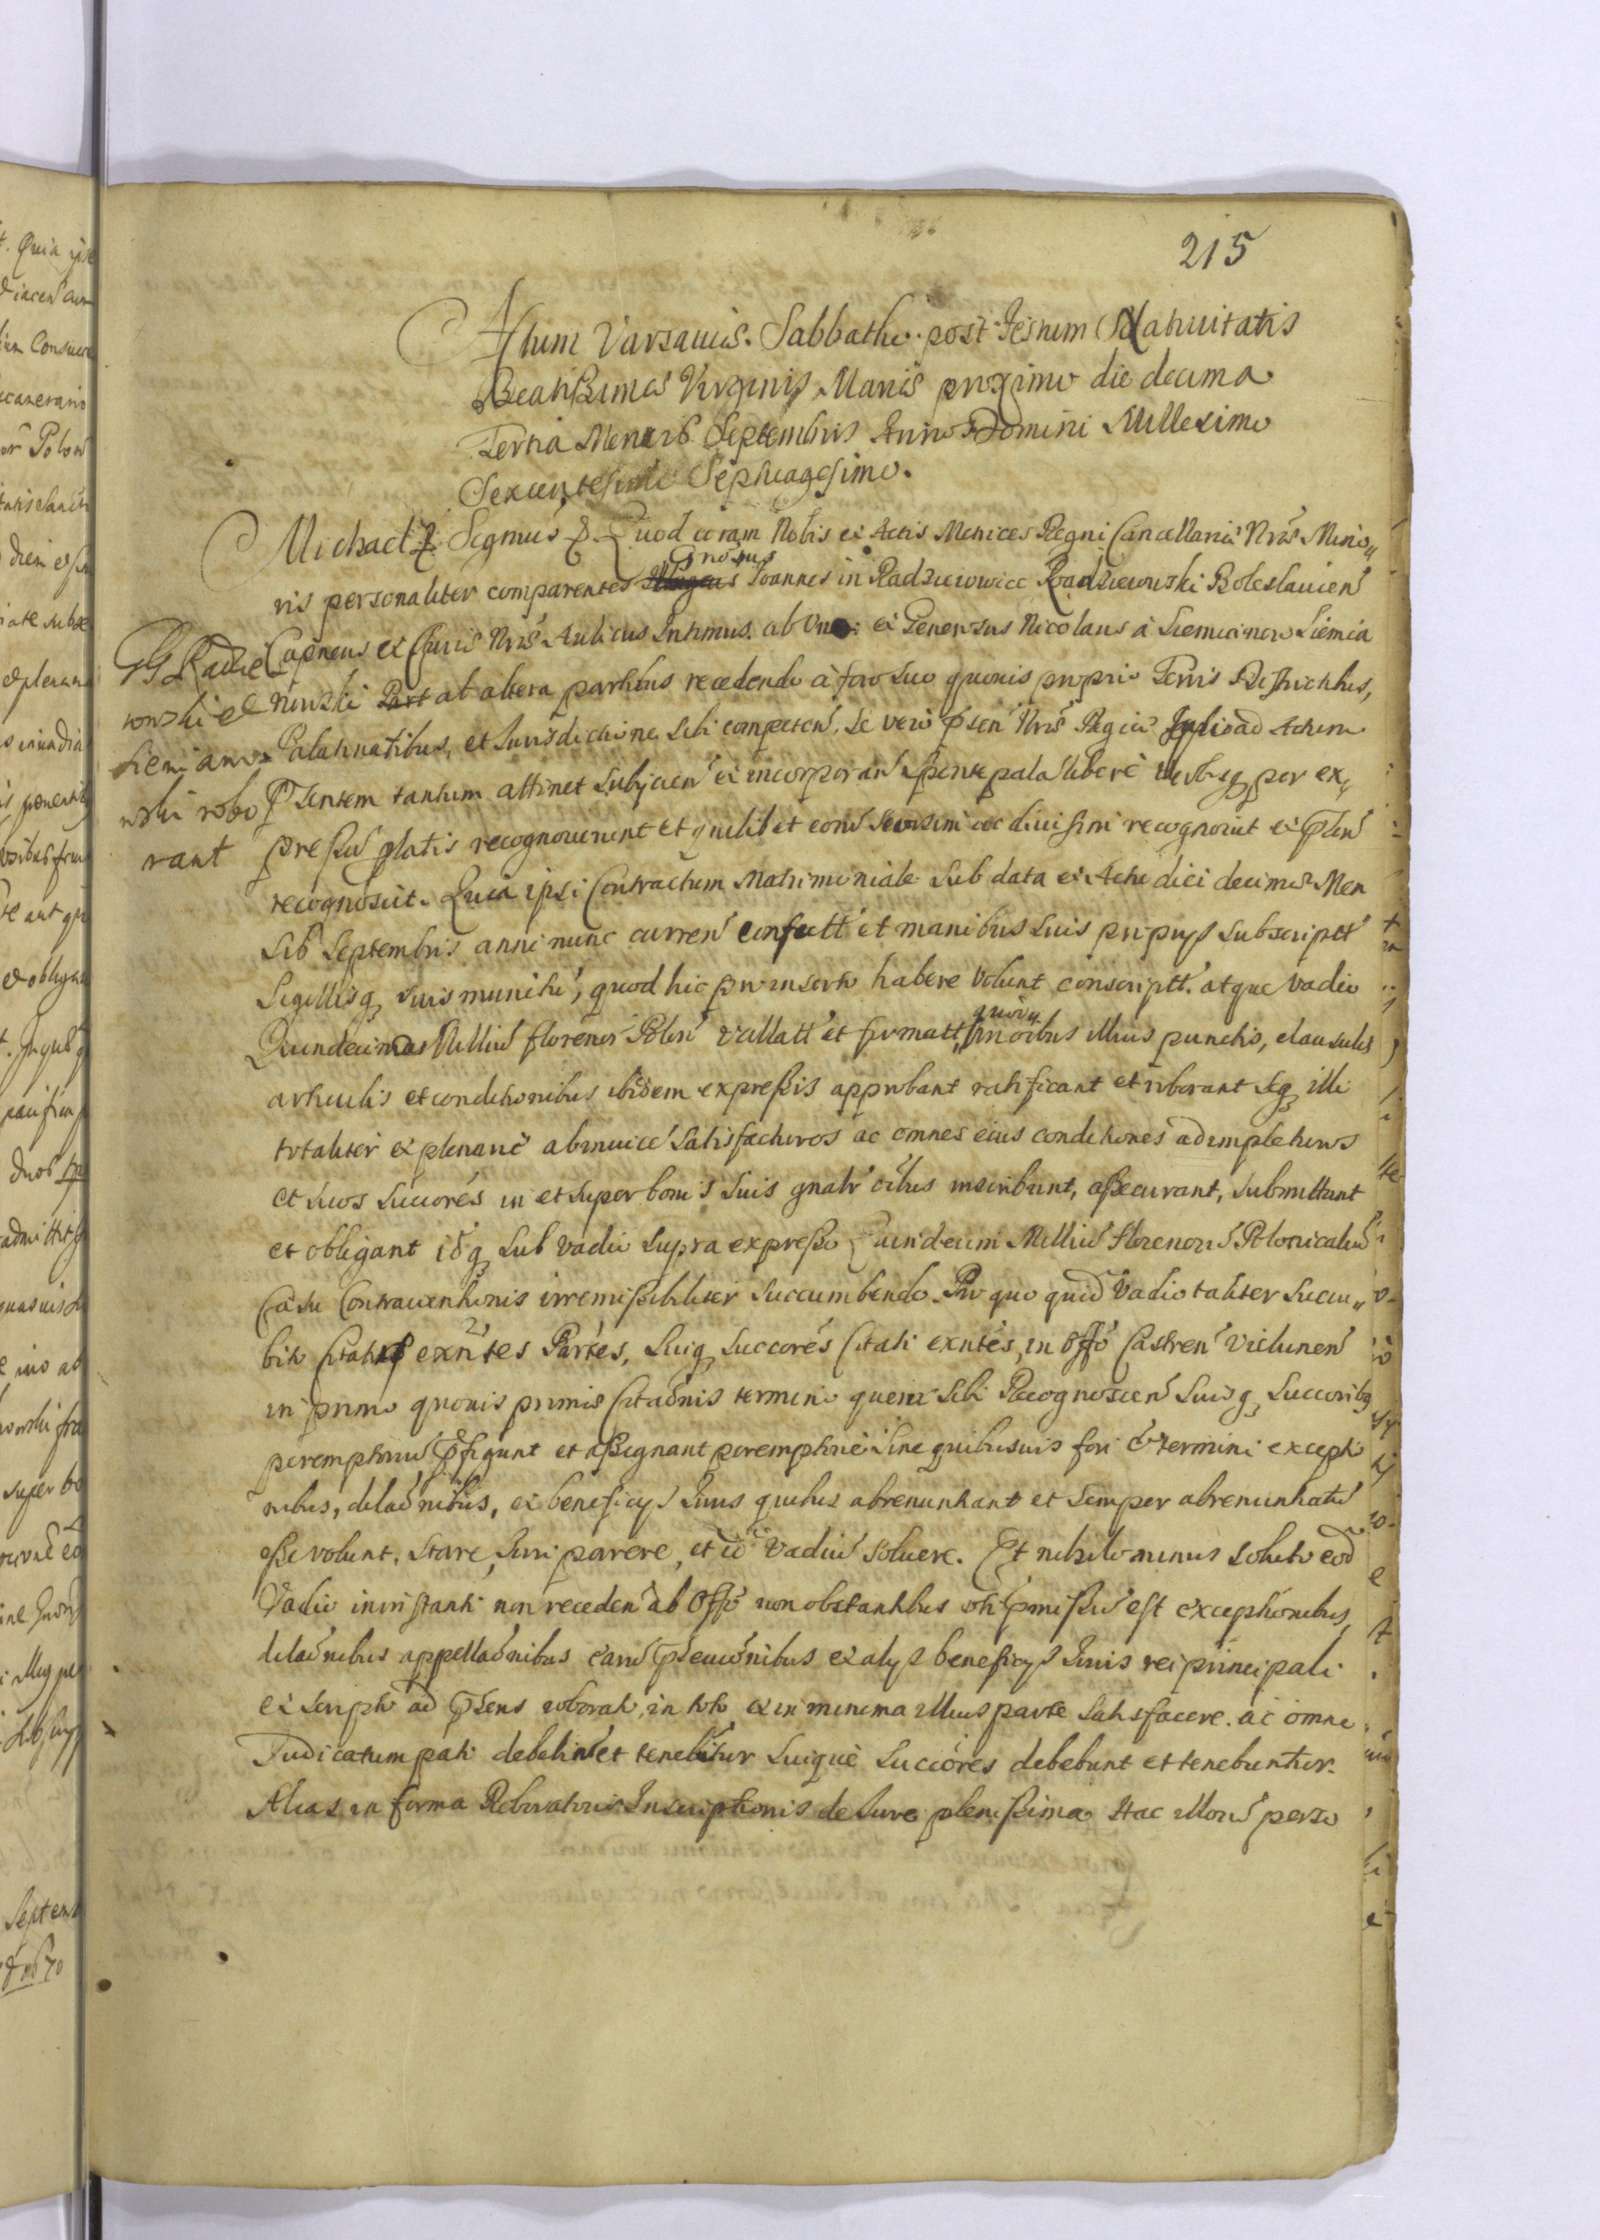 215
Actum Varsaviæ Sabbatho post Festum Nativitatis
Beatissimæ Virginis Mariæ proximo die decima
Tertia Mensis Septembris Anno Domini Millesimo
Sexcentesimo Septuagesimo.
Michael &c. Segmus &c. Quod coram Nobis et Actis Metrices Regni Cancellariæ Nrae Mino„
Gnosus
ris personaliter comparentes Ioannes in Radzieiowice Radzieiowski Boleslauien
GG Radzie
iowski et
Siemianow
wski robo
rant
Capneus et Curiæ Nrae Aulicus Intimus ab Una: et Generosus Nicolaus à Siemianow Siemia
nowski Part ab altera partibus recedendo à foro suo quouis proprio Terris Districtibus,
Palatinatibus, et Jurisdictione sibi competen. se vero psen Nrae Regiæ ad Actum
pntem tantum attinet subijcien et incorporan sponte pala libere verbisq per ex„
pressu platis recognouerunt et quilibet eoru seorsim ac diuisim recognouit et plen
recognoscit. Quia ipsi Contractum Matrimoniale sub data et Actu diei decimæ Men
sis Septembris anni nunc curren confectt et manibus suis proprijs subscriptt
Sigillisq suis munitu, quod hic pro inserto habere volunt conscriptt. atque vadio
quoru
Quindecim Milliu florenor Polon vallatt et firmatt, in oibus illius punctis, clausulis
articulis et conditionibus ibidem expressis approbant ratificant et roborant seq illi
totaliter et plenarie abinuice satisfacturos ac omnes eius conditiones adimpleturos
et suos succores in et super bonis suis gnalr oibus inscribunt, assecurant, submittunt
et obligant idq sub vadio supra expresso Quindecim Milliu florenoru Polonicaliu
Casu Contrauentionis irremissibiliter succumbendo. Pro quo quid Vadio taliter succu„
bito Citati exntes Partes, suiq succores Citati exntes, in Offo Castren Vielunen
in primo quouis primæ Citaonis termino quem sibi Recognoscen suisq succoribq
peremptoriu pfigunt et assignant peremptorie sine quibusuis fori et termini exceptio
nibus, dilaonibus, et beneficijs Iuris quibus abrenuntiant et semper abrenuntiatu
esse volunt, stare, Iuri parere, et id Vadiu soluere. Et nihilominus soluto eod
Vadio in instanti non receden ab Offo non obstantibus uti pmissu est exceptionibus,
dilaonibus appellaonibus earu pseuonibus et alijs beneficijs Iuris rei principali
et scripto ad psens roborato, in toto et in minima illius parte satisfacere. ac omne
Iudicatum pati debebunt et tenebuntur suique succores debebunt et tenebuntur.
Alias in forma Roboratoriæ Inscriptionis de Iure plenissima Hac illoru perso